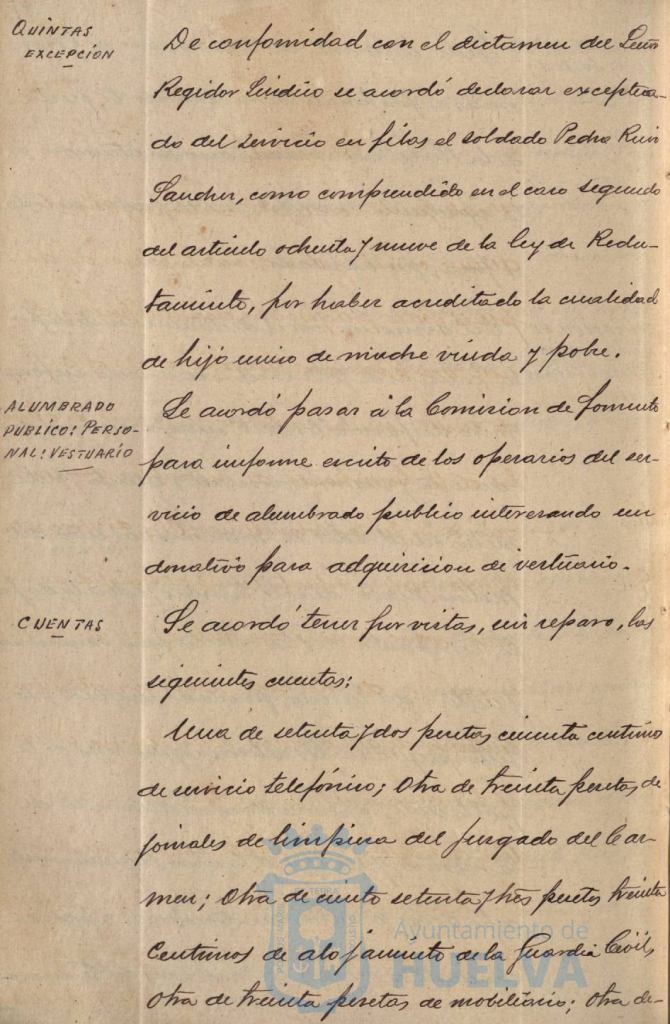 QUINTAS
EXCEPCIÓN
De conformidad con el dictamen del Señor
Regidor Sindico se acordó declarar exceptua-
do del servicio en filas el soldado Pedro Ruiz
Sanchez, como comprendido en el caso segundo
del articulo ochenta y nueve de la ley de Reclu-
tamiento, por haber acreditado la cualidad
de hijo unico de madre viuda y pobre.
ALUMBRADO
PUBLICO: PERSO-
NAL: VESTUARIO
Se acordó pasar á la Comision de fomento
para informe escrito de los operarios del ser-
vicio de alumbrado publico interesando un
donativo para adquisicion de vestuario.
CUENTAS
Se acordó tener por vistas, sin reparo, las
siguientes cuentas:
Una de setenta y dos pesetas cincuenta centimos
de servicio telefónico; Otra de treinta pesetas de
jornales de limpieza del Juzgado del Car-
men; Otra de ciento setenta y tres pesetas treinta
centimos de alojamiento de la Guardia Civil;
Otra de treinta pesetas de mobiliario; Otra de-
Ayuntamiento de
HUELVA